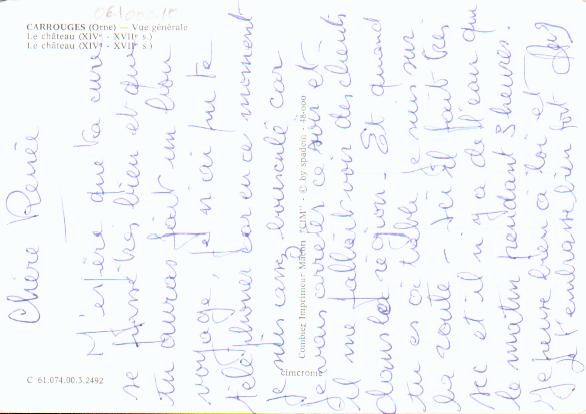 CARROUGES (Orne) — Vue générale
Le château (XIVe - XVIIe s.)
Le château (XIVe - XVIIe s.)
Chère Renée
J'espère que ta cure
se passe très bien et que
tu auras fait un bon
voyage, je n'ai pu te
téléphoner car en ce moment
je suis assez bousculé car
à ce soir et
il me fallait voir des clients
dans la région. Et quand
tu es ici je suis sur
la route - Ici il fait très
sec et il n'y a de l'eau que
le matin pendant 3 heures.
Je pense bien à toi et
je t'embrasse bien fort
Combier Imprimeur Macon "CIM" - © by spadem - 48-000
cimcrome
C 61.074.00.3.2492